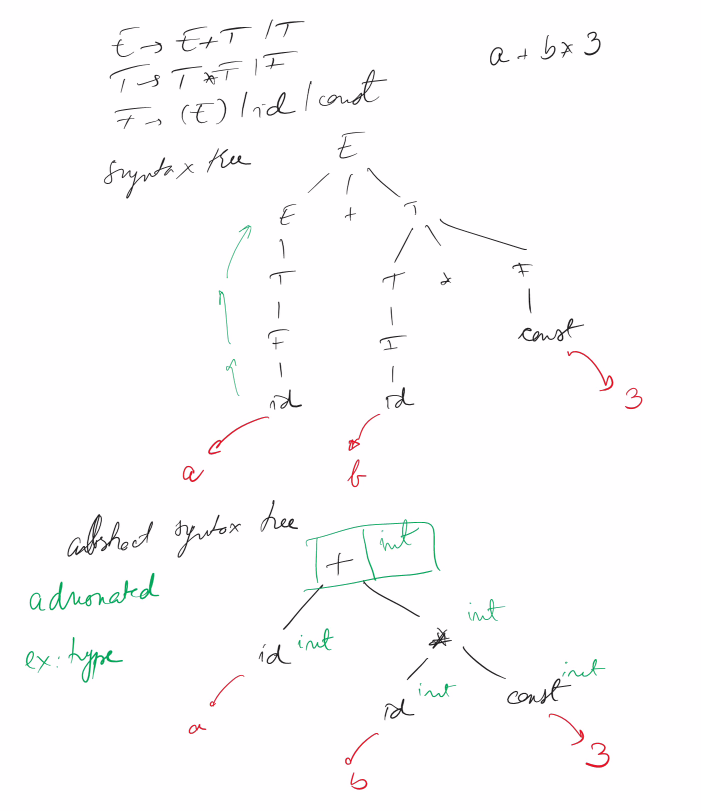 E → E + T / T
a + b * 3
T → T * F / F
F → (E) / id / const
syntax tree
E
E + T
T T * F
F F const
id id 3
a b
abstract syntax tree
+ int
adnonated
id int * int
ex: type
id int const int
a b 3